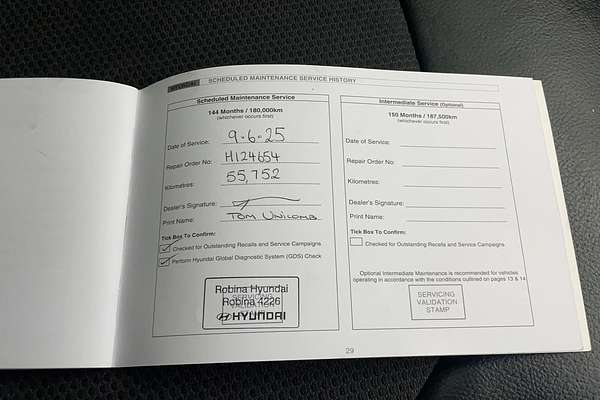 HYUNDAI SCHEDULED MAINTENANCE SERVICE HISTORY
Scheduled Maintenance Service
144 Months / 180,000km
(whichever occurs first)
Date of Service: 9.6.25
Repair Order No: H124654
Kilometres: 55,752
Dealer's Signature:
Print Name: TOM UNICOMB
Tick Box To Confirm:
Checked for Outstanding Recalls and Service Campaigns
Perform Hyundai Global Diagnostic System (GDS) Check
Robina Hyundai
SERVICING
Robina 4226
VALIDATION
STAMP
HYUNDAI
Intermediate Service (Optional)
150 Months / 187,500km
(whichever occurs first)
Date of Service:
Repair Order No:
Kilometres:
Dealer's Signature:
Print Name:
Tick Box To Confirm:
Checked for Outstanding Recalls and Service Campaigns
Optional Intermediate Maintenance is recommended for vehicles
operating in accordance with the conditions outlined on pages 13 & 14
SERVICING
VALIDATION
STAMP
29